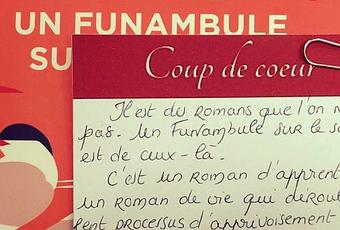 UN FUNAMBULE
SU
Coup de coeur
Il est des romans que l'on n
pas. Un Funambule sur le sa
est de ceux-là.
C'est un roman d'apprent
un roman de vie qui dérout
lent processus d'apprivoisement